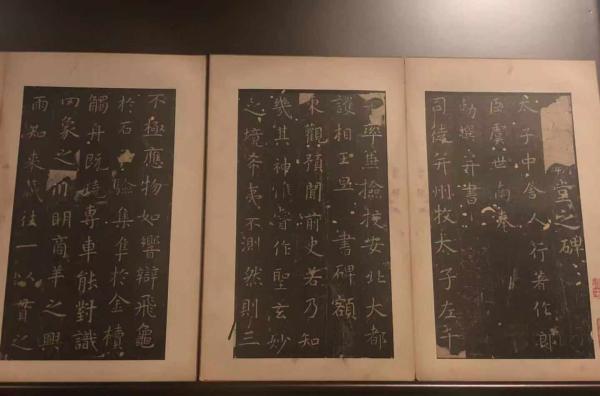 堂之碑
太子中舍人行著作郎
臣虞世南奉
勅撰并書
司徒并州牧太子左千
率兼撿挍安北大都
護相王旦書碑額
東觀預聞前史若乃知
幾其神惟睿作聖玄妙
之境希夷不測然則三
不極應物如響辯飛龜
於石驗集隼於金櫝
觸舟既曉專車能對識
罔象之川明商羊之興
雨知來藏往一以貫之